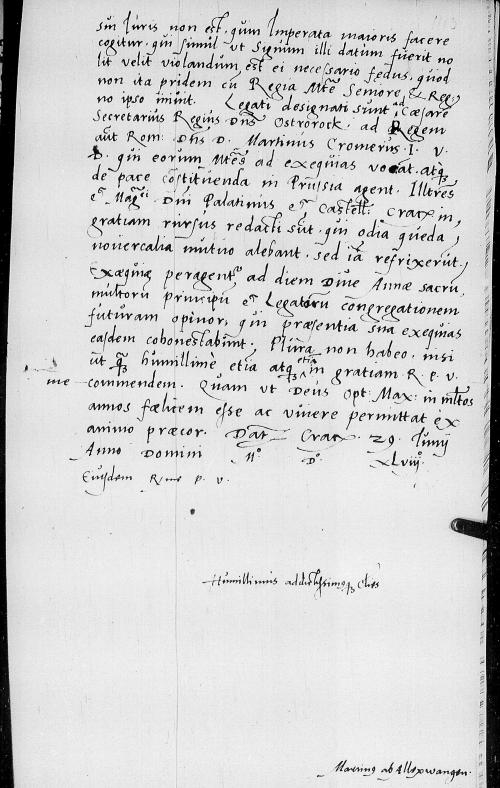 sui Iuris non est, quin Imperata maioris facere
cogitur, qui simul ut Signum illi datum fuerit no
lit velit violandum est ei necessario fedus, quod
non ita pridem cū Regia Mte Seniore et Rege
no ipso iniuit. Legati designati sunt ad Cæsarē
Secretarius Regius Dns Ostrorock. ad Regem
aūt Rom: Dns D. Martinus Cromerus. I. V.
D. qui eorum Mtes ad exequias vocat. atq3
de pace cōstituenda in Prussia agent. Illtres
et Magci. Dni Palatinus et Castell: Crac in
gratiam rursus redacti sūt, qui odia quedā
novercalia mutuo alebant, sed iā refrixerūt.
Exæquiæ peragentr ad diem Diuæ Annæ sacrū
multorū principū et Legatorū congregationem
futuram opinor, qui præsentia sua exequias
easdem cohonestabunt. Plura non habeo, nisi
ūt q3 humillimè etiā atq3 etiā in gratiam R. p. v.
me commendem. Quam ut Deus Opt. Max: in mltos
annos fælicem esse ac viuere permittat ex
animo præcor. Dat Crac. 29. Iunij
Anno Domini Mo. Do. XLviijo.
Eiusdem Rme p. v.
Humillimus addictissimusq3 Cliēs
Martinus ab Allexwangen.